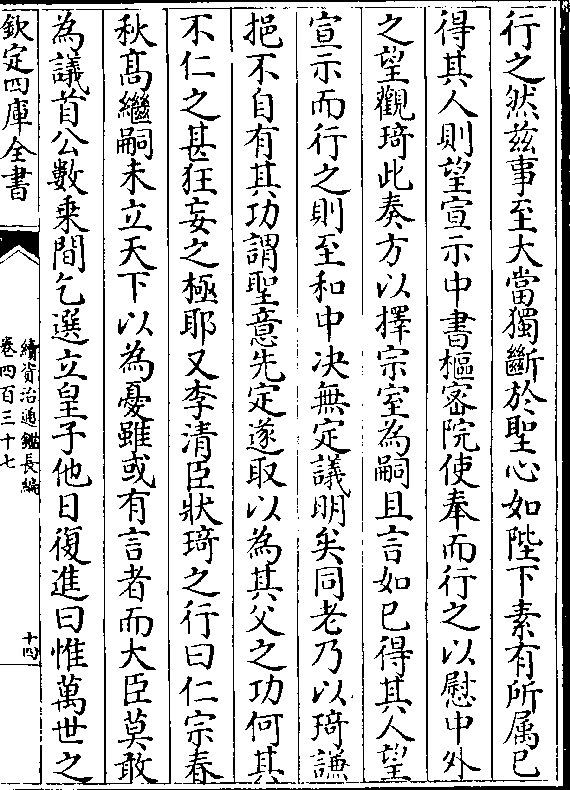 行之然兹事至大當獨斷於聖心如陛下素有所属已
得其人則望宣示中書樞密院使奉而行之以慰中外
之望觀琦此奏方以擇宗室為嗣且言如已得其人望
宣示而行之則至和中决無定議明矣同老乃以琦謙
挹不自有其功謂聖意先定遂取以為其父之功何其
不仁之甚狂妄之極耶又李清臣狀琦之行曰仁宗春
秋髙繼嗣未立天下以為憂雖或有言者而大臣莫敢
為議首公數乗間乞選立皇子他日復進曰惟萬世之
欽定四庫全書
續資治通鑑長編
卷四百三十七
十四